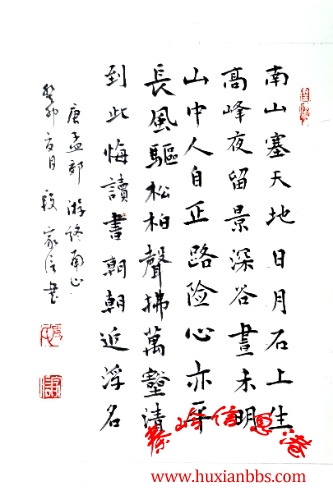 南山塞天地日月石上生
高峰夜留景深谷晝未明
山中人自正路险心亦平
長風驅松柏聲拂萬壑清
到此悔讀書朝朝近浮名
唐孟郊游终南山
癸卯
段家
书
信息港
www.huxianbbs.com